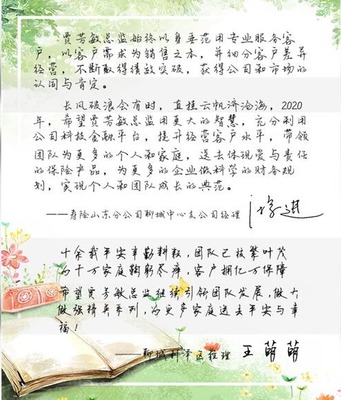 贾芳敏总监始终以身垂范用专业服务客
户，以客户需求为销售之本，并细分客户差异
经营，不断取得绩效突破，获得公司和市场的
认同与肯定。
长风破浪会有时，直挂云帆济沧海，2020
年，希望贾芳敏总监用更大的智慧，充分利用
公司科技金融平台，提升经营客户水平，带领
团队为更多的个人和家庭，送去体现爱与责任
的保险产品，为更多的企业做科学的财务规
划，实现个人和团队成长的典范。
——寿险山东分公司聊城中心支公司经理
十余载平安辛勤耕耘，团队已枝繁叶茂
为千万家庭鞠躬尽瘁，客户拥亿万保障
希望贾芳敏总监继续引领团队发展，做大
做强精英系列，为更多家庭送去平安与幸
福！
——聊城 区经理 王萌萌